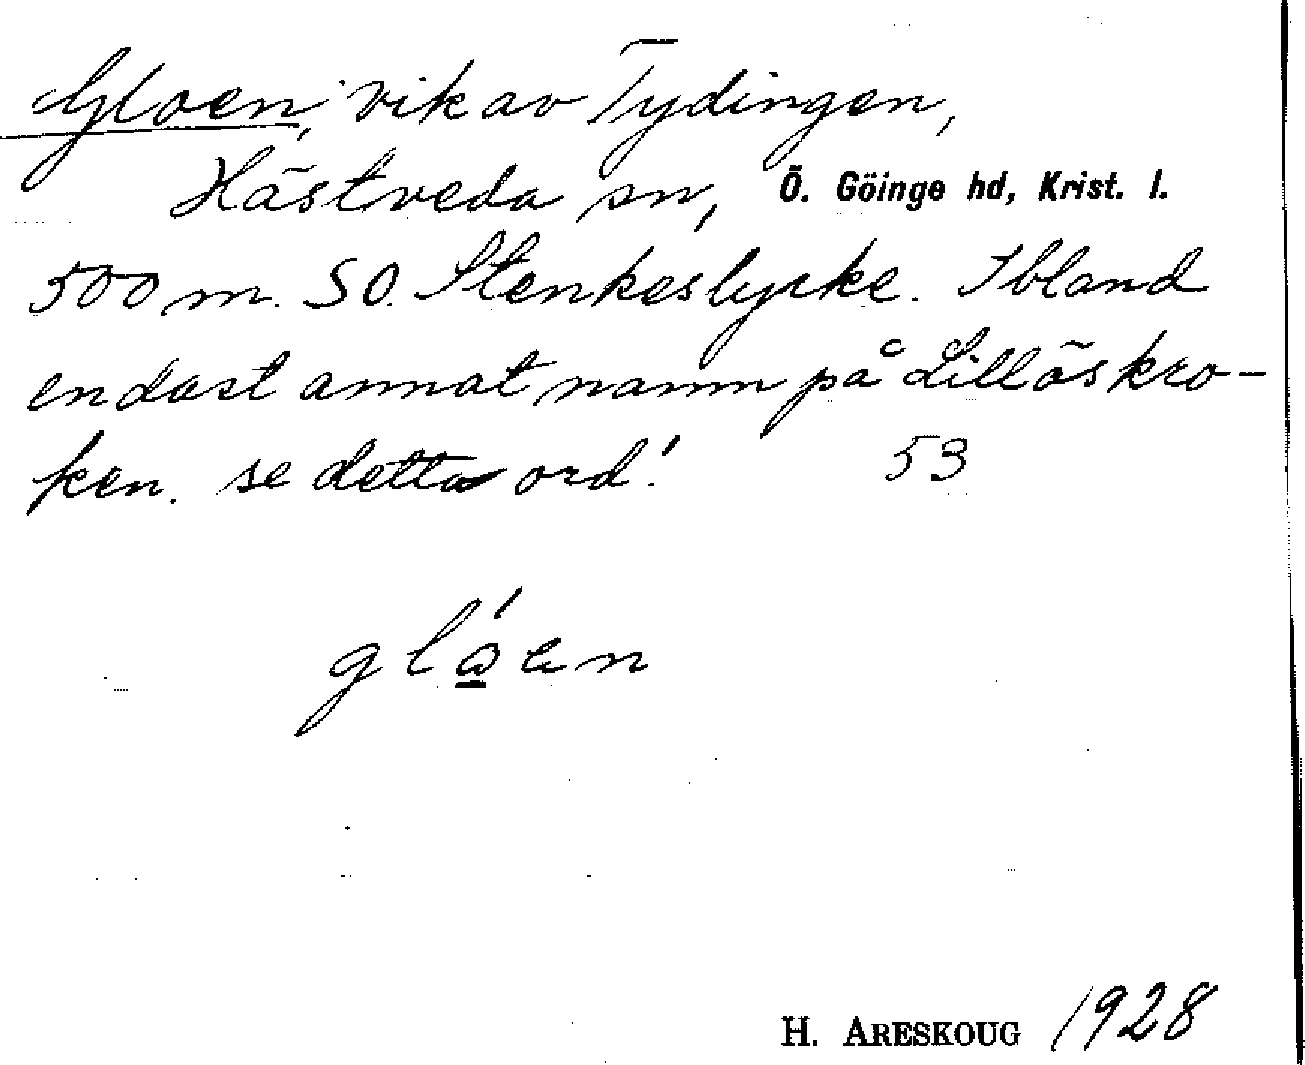 Gloen, vik av Tydingen,
Hästveda sn, Ö. Göinge hd, Krist. l.
500 m. SO. Stenkeslycke. Ibland
endast annat namn på Lillöskro-
ken. se detta ord! 53
glóen
H. ARESKOUG 1928